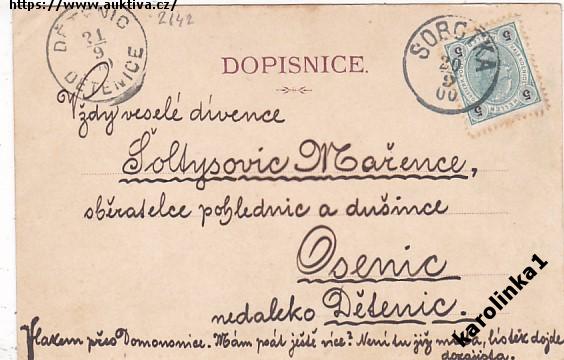 https://www.auktiva.cz/
2142
DĚTENIC
21
9
DĚTENICE
SOBOTKA
20
9
00
5
5
5
5
DOPISNICE.
Vždy veselé dívence
Šoltysovic Mařence,
sběratelce pohlednic a dušince
Osenic
nedaleko Dětenic.
Vlakem přes Domousnice. Mám psát ještě více? Není tu již místa, lístek dojde
dozajista.
karolinka1